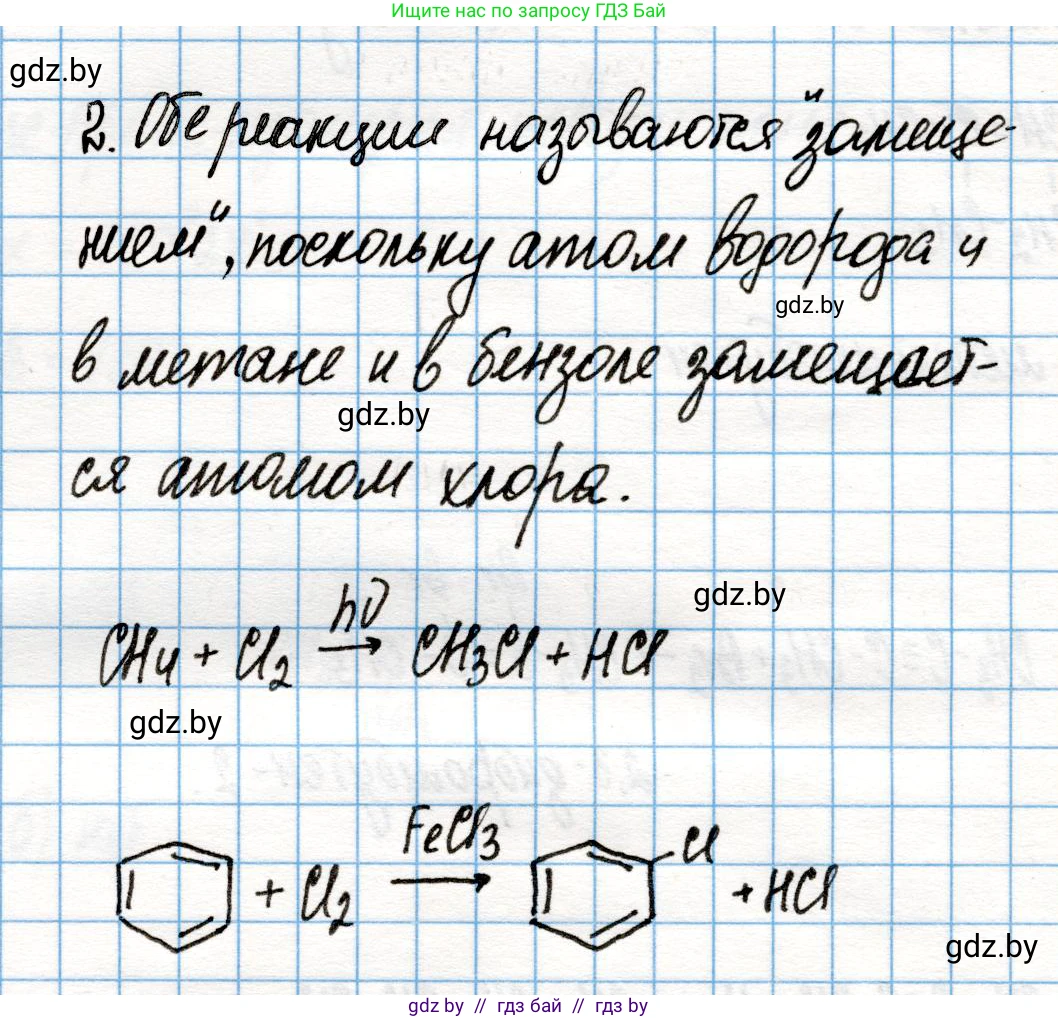 Ищите нас по запросу ГДЗ Бай
gdz.by
2. Обе реакции называются "замеще-
нием", поскольку атом водорода и
gdz.by
в метане и в бензоле замещает-
gdz.by
ся атомом хлора.
gdz.by
hν
CH4 + Cl2 → CH3Cl + HCl
gdz.by
FeCl3
Cl
+ Cl2 → + HCl
gdz.by
gdz.by // гдз бай // гдз by